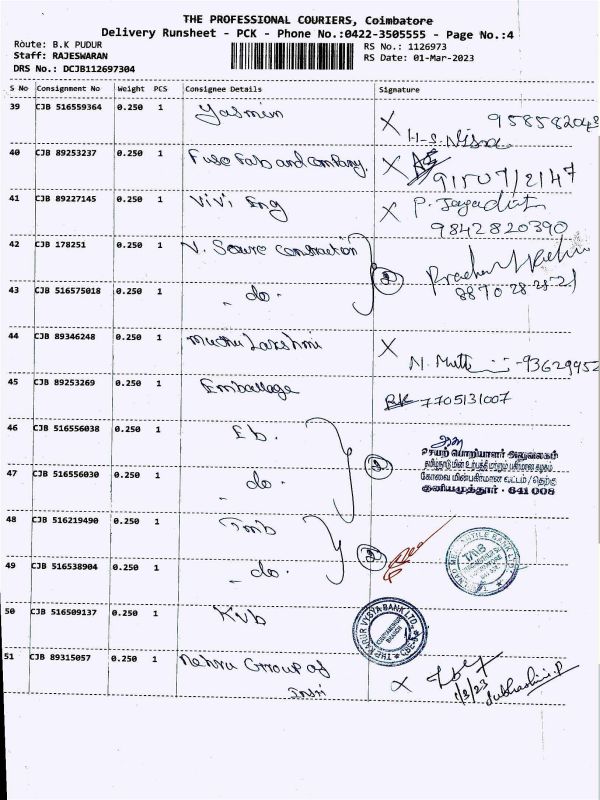 THE PROFESSIONAL COURIERS, Coimbatore
Delivery Runsheet - PCK - Phone No.:0422-3505555 - Page No.:4
Route: B.K PUDUR
RS No.: 1126973
Staff: RAJESWARAN
RS Date: 01-Mar-2023
DRS No.: DCJB112697304
S No Consignment No Weight PCS Consignee Details Signature
39 CJB 516559364 0.250 1 Yasmin X 958582043
H.S. Nisha
40 CJB 89253237 0.250 1 Fuse Fab and company. X
41 CJB 89227145 0.250 1 ViVi Eng X P. Jagadish
9842820390
42 CJB 178251 0.250 1 V. Secure Construction 2
43 CJB 516575018 0.250 1 - do - 8870 28 28 21
44 CJB 89346248 0.250 1 Muthu Lakshmi X
N. Muthu -93629952
45 CJB 89253269 0.250 1 Emballage BK 7705131007
46 CJB 516556038 0.250 1 Eb. 2
செயற் பொறியாளர் அலுவலகம்
தமிழ்நாடு மின் உற்பத்தி மற்றும் பகிர்மான கழகம்
47 CJB 516556030 0.250 1 - do -
கோவை மின்பகிர்மான வட்டம் / தெற்கு
குனியமுத்தூர் - 641 008
48 CJB 516219490 0.250 1 Tmb 2
49 CJB 516538904 0.250 1 - do - TMB
50 CJB 516509137 0.250 1 Kvb THE KARUR VYSYA BANK LTD.
BRANCH
51 CJB 89315057 0.250 1 Nehru Group of
Insti X 1/3/23 Subhashini.P